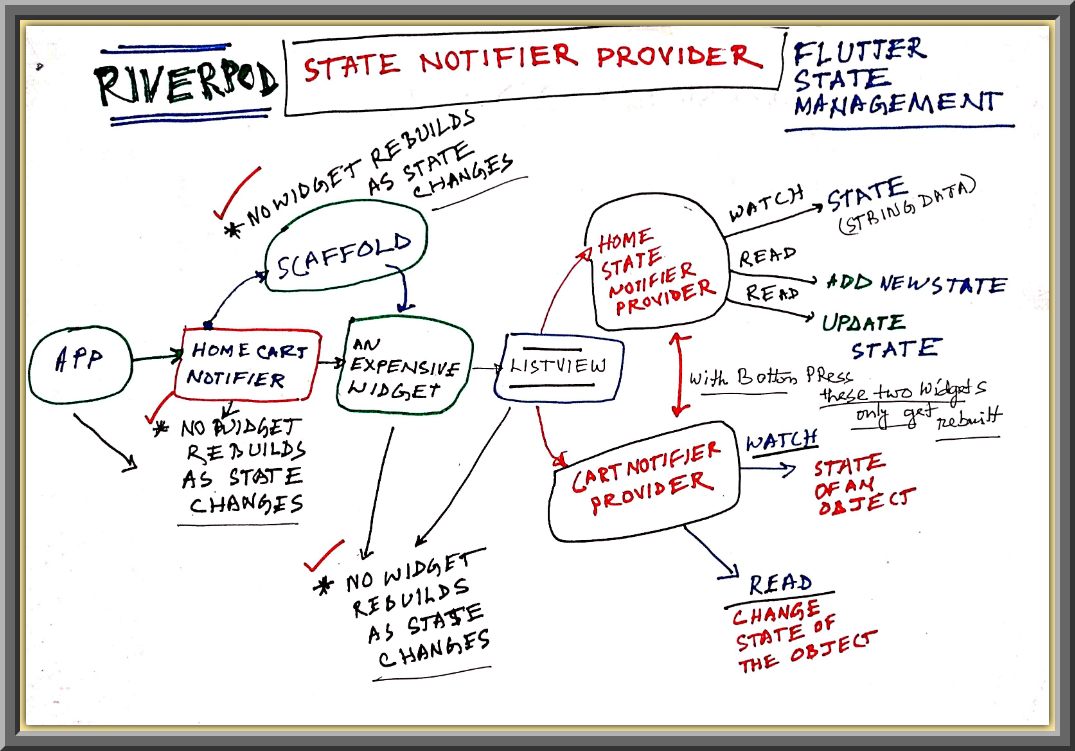 RIVERPOD
STATE NOTIFIER PROVIDER
FLUTTER
STATE
MANAGEMENT
* NO WIDGET REBUILDS
AS STATE
CHANGES
SCAFFOLD
APP
HOME CART
NOTIFIER
* NO WIDGET
REBUILDS
AS STATE
CHANGES
AN
EXPENSIVE
WIDGET
LISTVIEW
* NO WIDGET
REBUILDS
AS STATE
CHANGES
HOME
STATE
NOTIFIER
PROVIDER
WATCH
STATE
(STRING DATA)
READ
ADD NEW STATE
READ
UPDATE
STATE
with Botton PRess
these two widgets
only get rebuilt
CART NOTIFIER
PROVIDER
WATCH
STATE
OF AN
OBJECT
READ
CHANGE
STATE OF
THE OBJECT